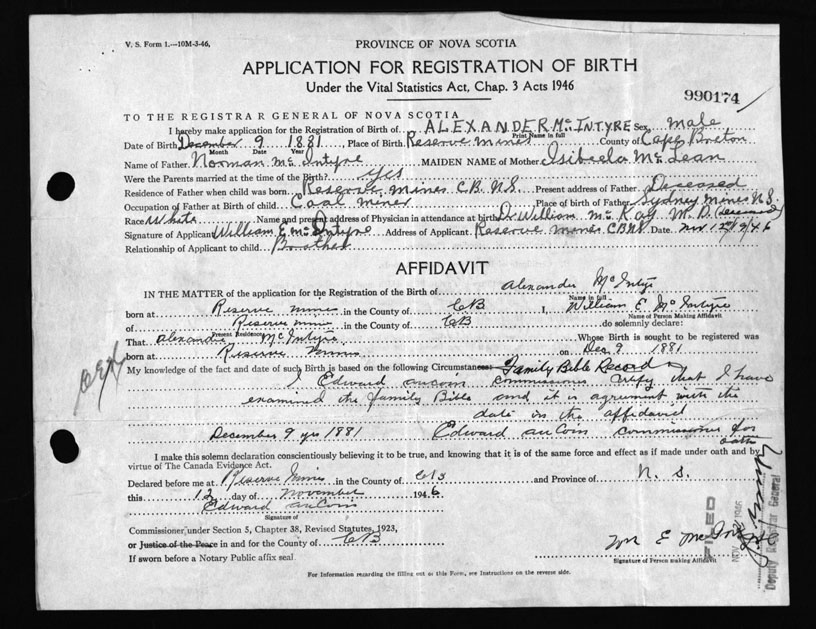 V. S. Form 1.—10M-3-46.
PROVINCE OF NOVA SCOTIA
APPLICATION FOR REGISTRATION OF BIRTH
Under the Vital Statistics Act, Chap. 3 Acts 1946
990174
TO THE REGISTRAR GENERAL OF NOVA SCOTIA
I hereby make application for the Registration of Birth of ALEXANDER Mc INTYRE Sex male
Print Name in full
Date of Birth December 9 1881 Place of Birth Reserve Mines County of Cape Breton
Month Date Year
Name of Father Norman Mc Intyre MAIDEN NAME of Mother Isibela Mc Lean
Were the Parents married at time of the Birth? Yes
Residence of Father when child was born Reserve Mines C.B. N.S. Present address of Father Deceased
Occupation of Father at Birth of Child Coal Miner Place of birth of Father Sydney Mines N.S.
Race White Name and present address of Physician in attendance at birth Dr William Mc Kay M.D. (deceased)
Signature of Applicant William E Mc Intyre Address of Applicant Reserve Mines C.B. N.S. Date Nov 12 1946
Relationship of Applicant to child Brother
AFFIDAVIT
IN THE MATTER of the application for the Registration of Birth of Alexander McIntyre
Name in full
born at Reserve Mines in the County of CB I, William E McIntyre
Name of Person Making Affidavit
of Reserve Mines in the County of CB do solemnly declare:
Present Residence
That Alexander McIntyre Whose Birth is sought to be registered was
born at Reserve Mines on Dec 9 1881
My knowledge of the fact and date of such Birth is based on the following Circumstances: Family Bible Record
I Edward aucoin commissioner certify that I have
examined the family Bible and it is agrument with the
date in the affidavid
December 9 yrs 1881 Edward auCoin commissioner for
oath
I make this solemn declaration conscientiously believing it to be true, and knowing that it is of the same force and effect as if made under oath and by
virtue of The Canada Evidence Act.
Declared before me at Reserve Mines in the County of CB and Province of N. S.
this 12 day of November 1946
Edward auCoin
Signature of
Commissioner under Section 5, Chapter 38, Revised Statutes, 1923,
or Justice of the Peace in and for the County of CB
If sworn before a Notary Public affix seal
Wm E McIntyre
Signature of Person Making Affidavit
FILED
NOV 1946
Deputy Registrar General
For Information regarding the filling out of this Form, see Instructions on the reverse side.